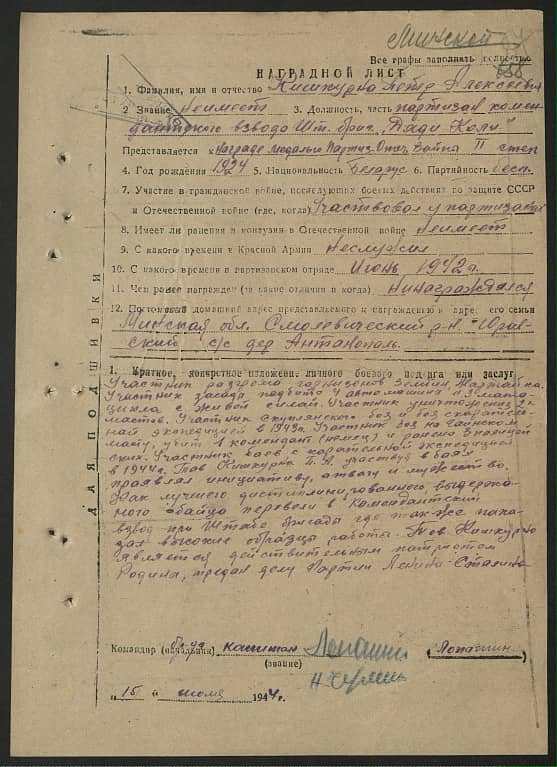 Минской
Все графы заполнять полностью
НАГРАДНОЙ ЛИСТ
1. Фамилия, имя и отчество Кишкурно Петр Алексеевич
2 Звание Неимеет 3. Должность, часть партизан комен-
дантского взвода Шт. бриг. "Дяди Коли"
Представляется к Награде медалью Партиз. Отеч. Война II степ
4. Год рождения 1924 5. Национальность Беларус 6. Партийность Бесп.
7. Участие в гражданской войне, последующих боевых действиях по защите СССР
и Отечественной войне (где, когда) Участвовал у партизанах
8. Имеет ли ранения и контузии в Отечественной войне Неимеет
9. С какого времени в Красной Армии Неслужил
10. С какого времени в партизанском отряде Июнь 1942г.
11. Чем ранее награжден (за какие отличия и когда) Ненаграждался
12. Постоянный домашний адрес представляемого к награждению и адрес его семьи
Минская обл. Смолевический р-н Юрав-
ский с/с дер Антанополь.
ДЛЯ ПОДШИВКИ
1. Краткое, конкретное изложение личного боевого подвига или заслуг
Участник разгрома гарнизонов Зембин,
Участник засада подбито 7 автомашин и 3
цикла с живой силай. Участник уничтожения
мастов. Участник боя и боя с каратель-
ной экспедицией в 1943г. Участник боя на
убит комендант (немец) и ранено 3
ских. Участник баев с карательной экспедицией
в 1944г. Тов Кишкурно П. А. участвуя в баях
проявлял инициативу, отвагу и мужество.
Как лучшего дисциплинированного выдержа-
ного бойца перевели в Комендантский
взвод при Штабе бригада где также пока-
зал высокие образцы работы. Тов. Кишкурно
является действительным патриотом
Родины, предан делу Партии Ленина-Сталина
Командир (начальник) бр-ды капитан (Лопатин)
(звание)
"15" июля 1944г.